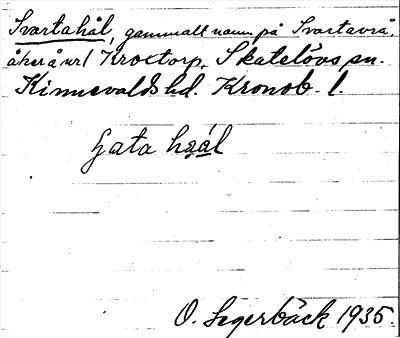 Svartahål, gammalt namn på Svartavrå,
åker å nr 1 Kroctorp, Skatelövs sn.
Kinnevalds hd. Kronob. l.
Gata hål
O. Segerbäck 1935.